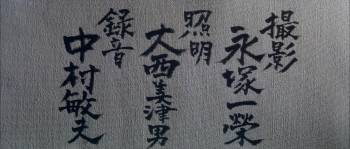 撮影
永塚一栄
照明
大西美津男
録音
中村敏夫